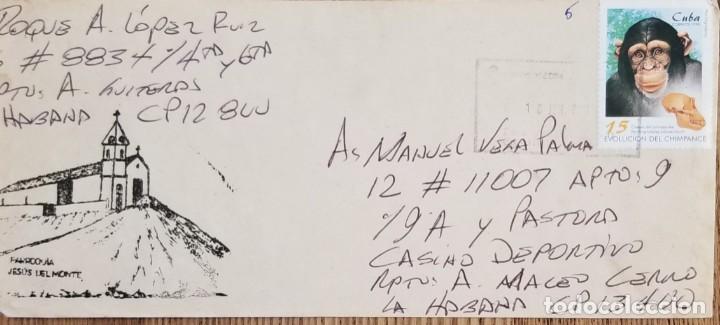 ROQUE A. LÓPEZ RUIZ
# 8834 %4TA y 6TA
RPTO: A. GUITERAS
HABANA CP12 800
6
Cuba
CORREOS
15
EVOLUCION DEL CHIMPANCE
A: MANUEL VERA PALMA
12 # 11007 APTO: 9
%9A y PASTORA
CASINO DEPORTIVO
RPTO: A. MACEO CERRO
LA HABANA CP.13400
PARROQUIA
JESUS DEL MONTE
todocoleccion